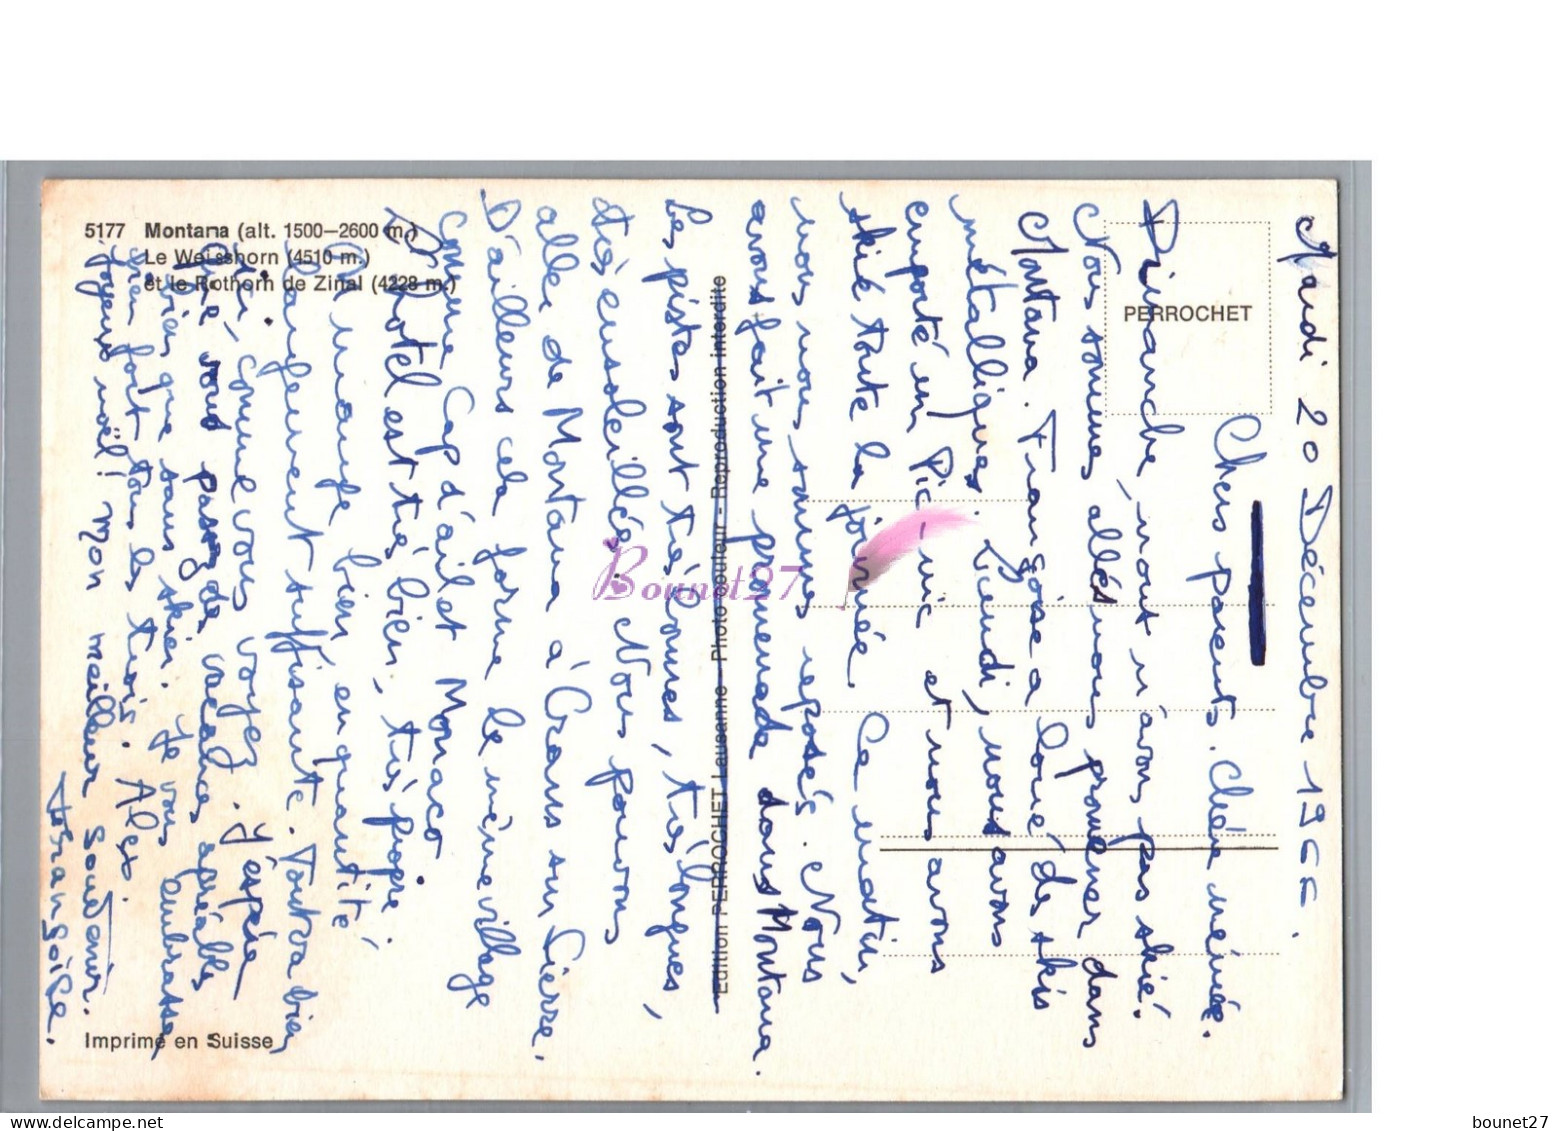 5177 Montana (alt. 1500–2600 m.)
Le Weisshorn (4510 m.)
et le Rothorn de Zinal (4228 m.)
PERROCHET
Edition PERROCHET Lausanne - Photo couleur - Reproduction interdite
Imprimé en Suisse
Mardi 20 Décembre 1966
Chers parents. Chère mémée.
Dimanche, nous n'avons pas skié.
Nous sommes allés nous promener dans
Montana. Françoise a loué des skis
métalliques. Lundi, nous avons
emporté un Pic-nic et nous avons
skié toute la journée. Ce matin,
nous nous sommes reposés. Nous
avons fait une promenade dans Montana.
Les pistes sont très bonnes, très longues,
très ensoleillées. Nous pouvons
aller de Montana à Crans sur Sierre.
D'ailleurs cela forme le même village
comme Cap d'ail et Monaco.
L'hotel est très bien, très propre
On mange bien, en quantité
largement suffisante. Tout va bien
ici, comme vous voyez. J'espère
que vous passez de vacances agréables
bien que sans skier. Je vous embrasse
bien fort tous les trois. Alex
Joyeux noël! Mon meilleur souvenir.
Françoise.
Bounet27
bounet27